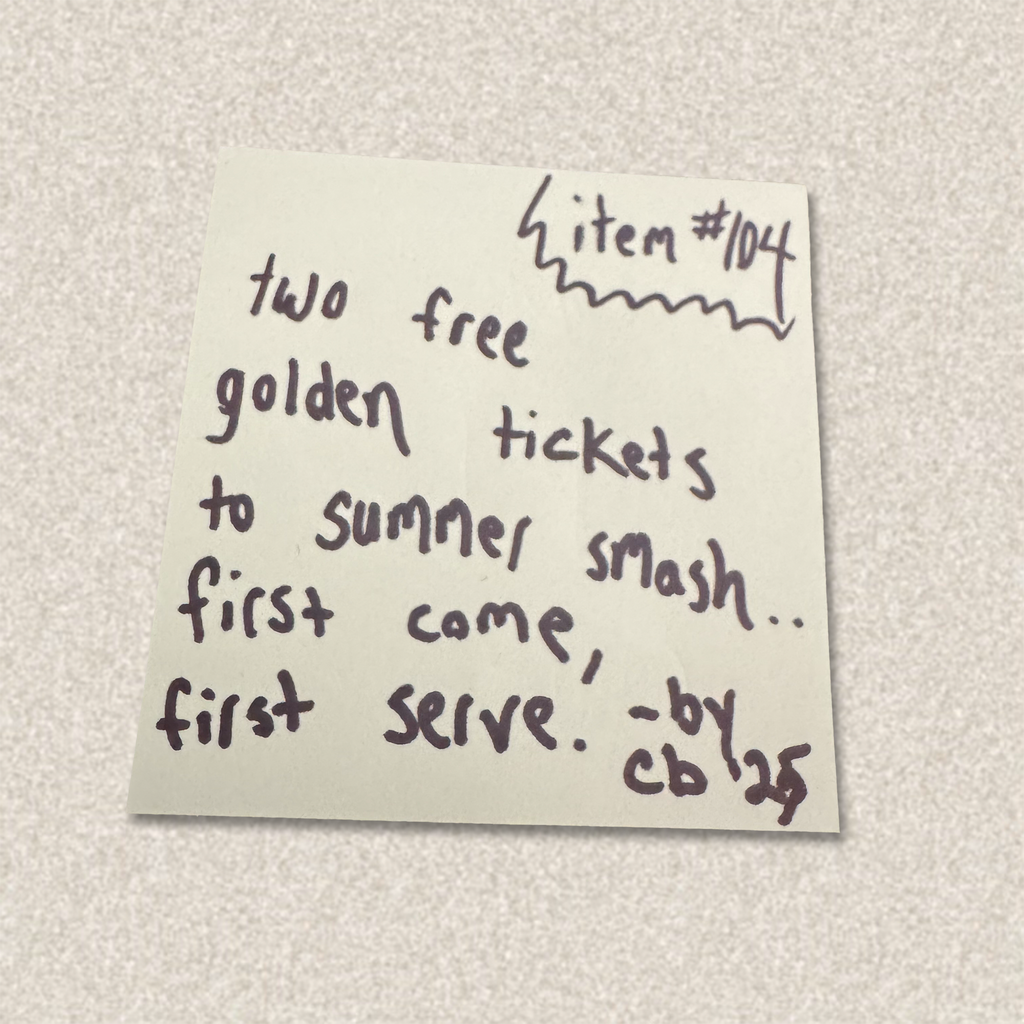 item #104
two free
golden tickets
to summer smash..
first come,
first serve. -by
cb '25